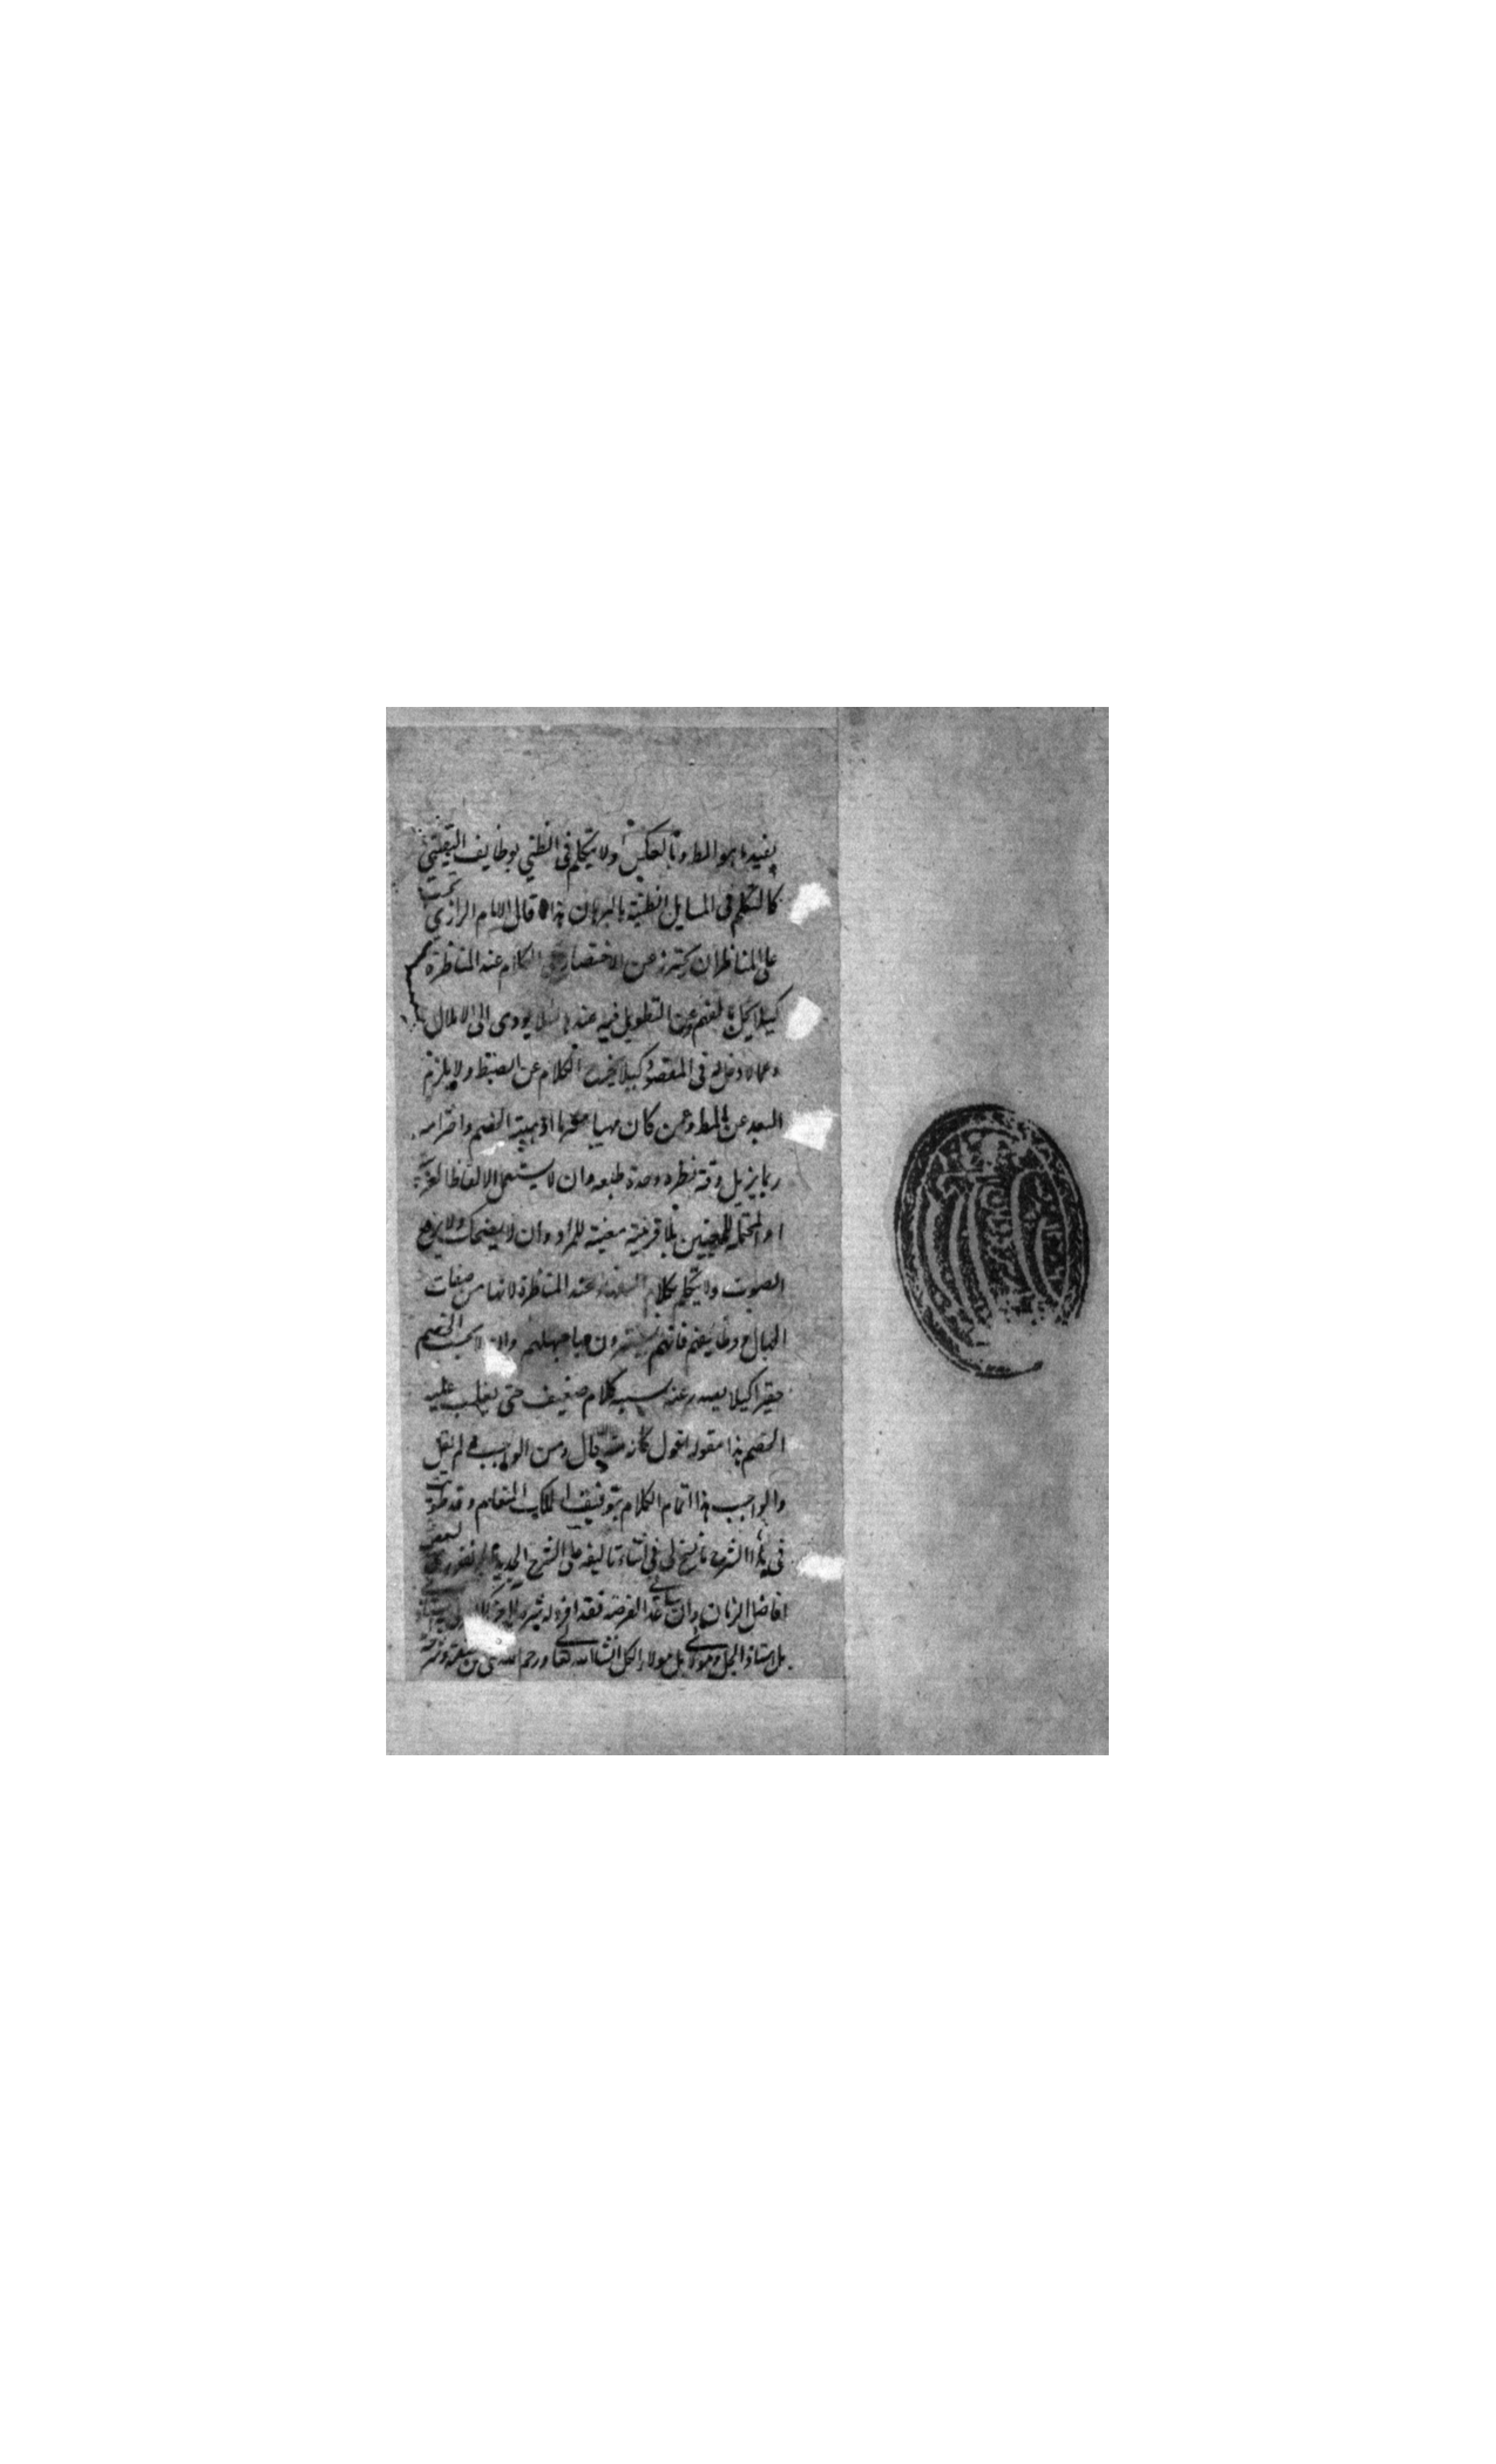 يفيده هو المط وبالعكس ولا يتكلم في الظني بوظايف اليقيني
كالتكلم في المسايل الظنية بالبرهان هذا قال الامام الرازي يجب
على المناظر ان يحترز عن الاختصار في الكلام عند المناظرة
كيلا يخل بالفهم وعن التطويل فيه عندها لئلا يودى الى الاملال
وعما لا دخل له في المقصود كيلا يخرج الكلام عن الضبط ولا يلزم
البعد عن المط وعمن كان مهيبا محترما اذ هيبة الخصم واحترامه
ربما يزيل دقة نظره وحدة طبعه وان لا يستعمل الالفاظ الغريبة
او المحتملة للمعنيين بلا قرينة معينة للمراد وان لا يضحك ولا يرفع
الصوت ولا يتكلم بكلام السفهاء عند المناظرة لانها من صفات
الجهال ووظايفهم فانهم يسترون بها جهلهم وان لا يحسب الخصم
حقيرا كيلا يصدر عنه بسببه كلام ضعيف حتى يغلب عليه
الخصم هذا مقوله اقول كانه قال ومن الواجب لم يقل
والواجب هذا اتمام الكلام بتوفيق الملك المنعام وقد
في هذا الشرح ما سنح لي في اثناء تاليفه على الشرح
افاضل الزمان وان الفرصة فقد
بل استاذ الكل ومولائي بل مولاء الكل انشا الله تعا ورحم الله